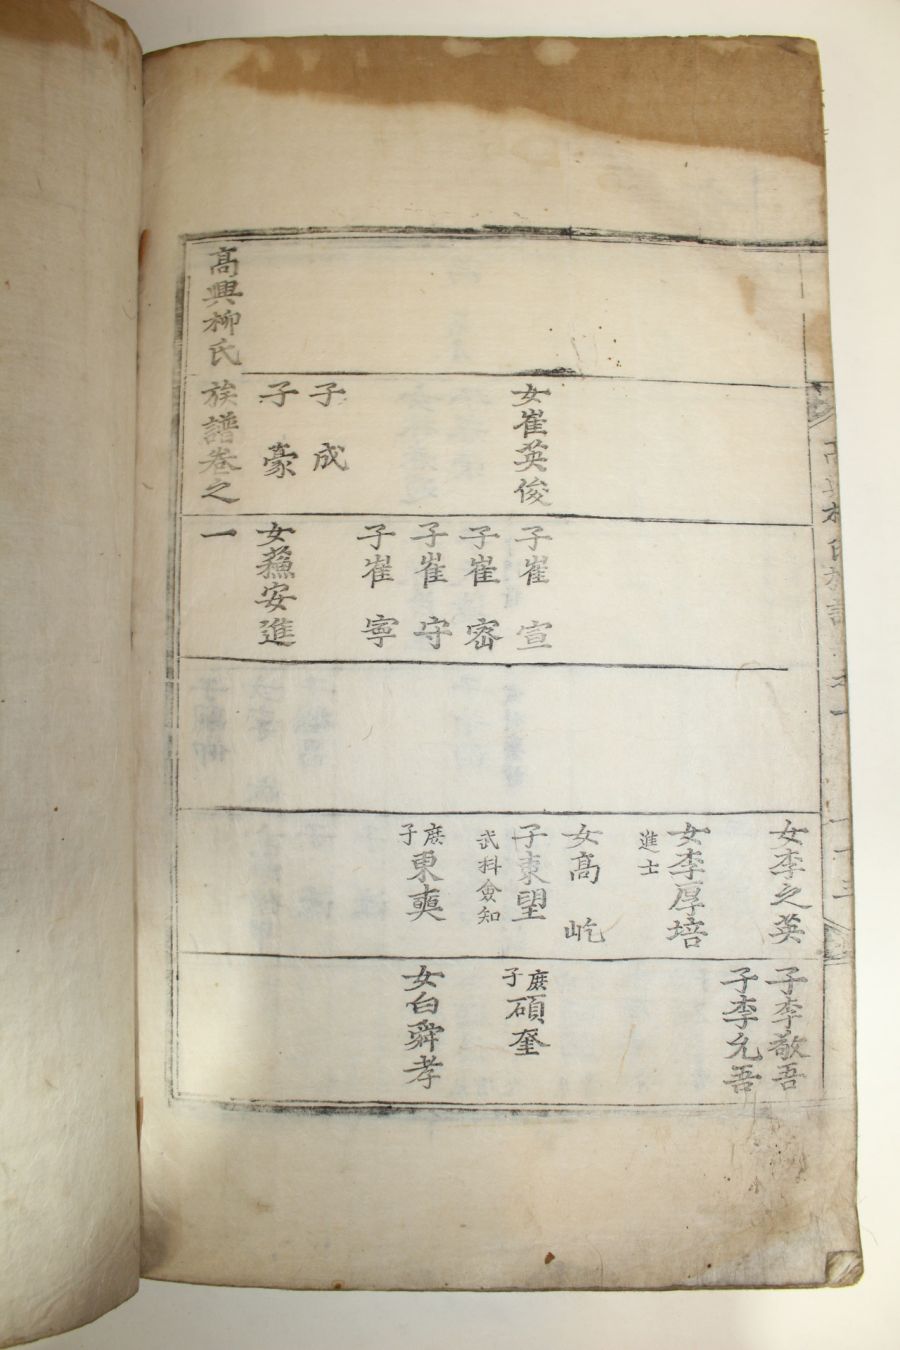 女崔英俊
子成
子豪
子崔宣
子崔密
子崔守
子崔寧
女蘇安進
女李之英
女李厚培
進士
女高屹
子東望
武科僉知
庶子東奭
子李敬吾
子李允吾
庶子碩奎
女白舜孝
高興柳氏族譜卷之一